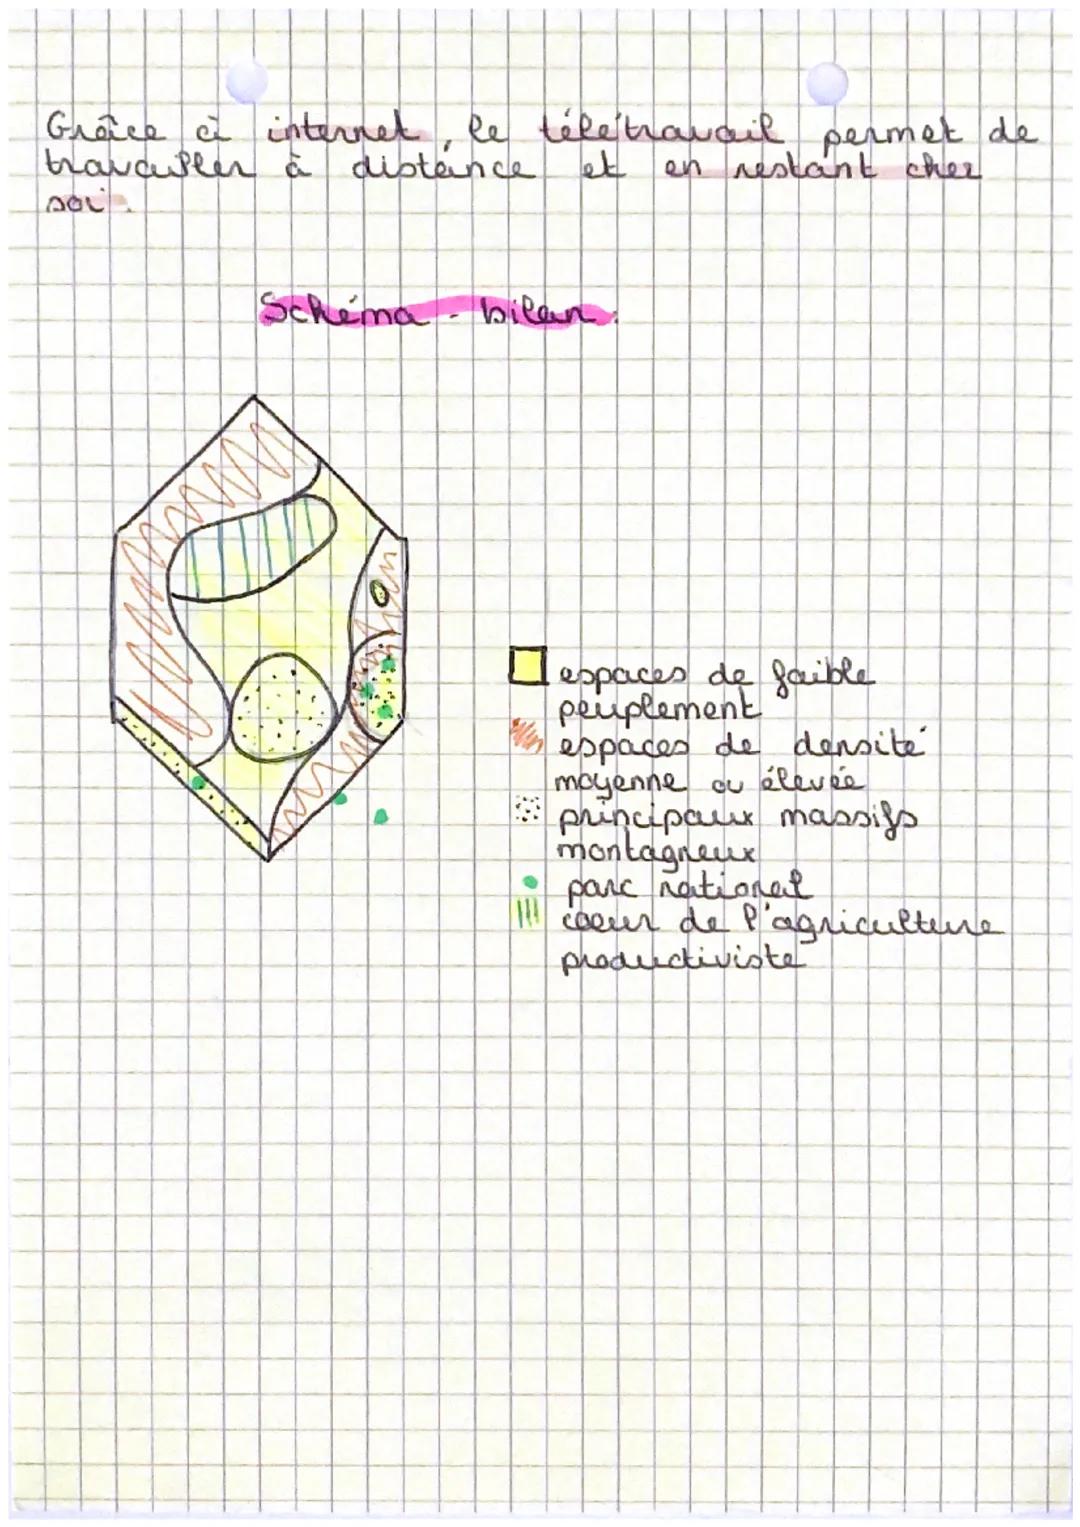 Grâce à internet, le télétravail permet de
travailler à distance et en restant chez
soi.
Schéma - bilan:
espaces de faible
peuplement
espaces de densité
moyenne ou élevée
principaux massifs
montagneux
parc national
coeur de l'agriculture
productiviste